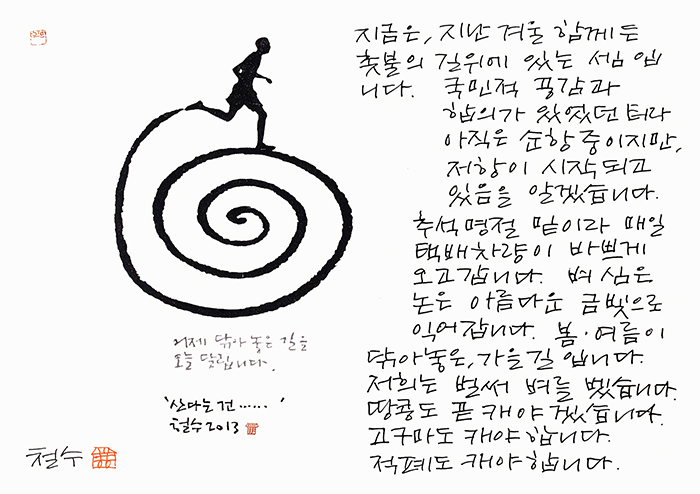 지금은, 지난 겨울 함께 든
촛불의 길위에 있는 셈 입
니다. 국민적 공감과
합의가 있었던 터라
아직은 순항 중이지만,
저항이 시작되고
있음을 알겠습니다.
추석명절 밑이라 매일
택배차량이 바쁘게
오고갑니다. 벼 심은
논은 아름다운 금빛으로
익어갑니다. 봄·여름이
닦아놓은, 가을길 입니다.
저희는 벌써 벼를 벴습니다.
땅콩도 곧 캐야겠습니다.
고구마도 캐야합니다.
적폐도 캐야합니다.
어제 닦아 놓은 길을
오늘 달립니다.
'산다는 건…… '
철수 2013
철수